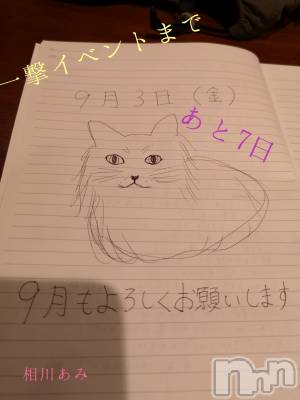 一撃イベントまで
9月3日(金)
あと7日
9月もよろしくお願いします
相川あみ